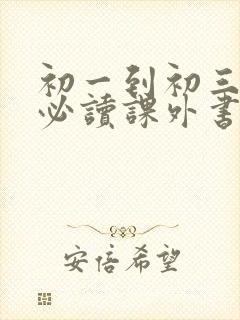 初一到初三
必讀課外書
安倍希望